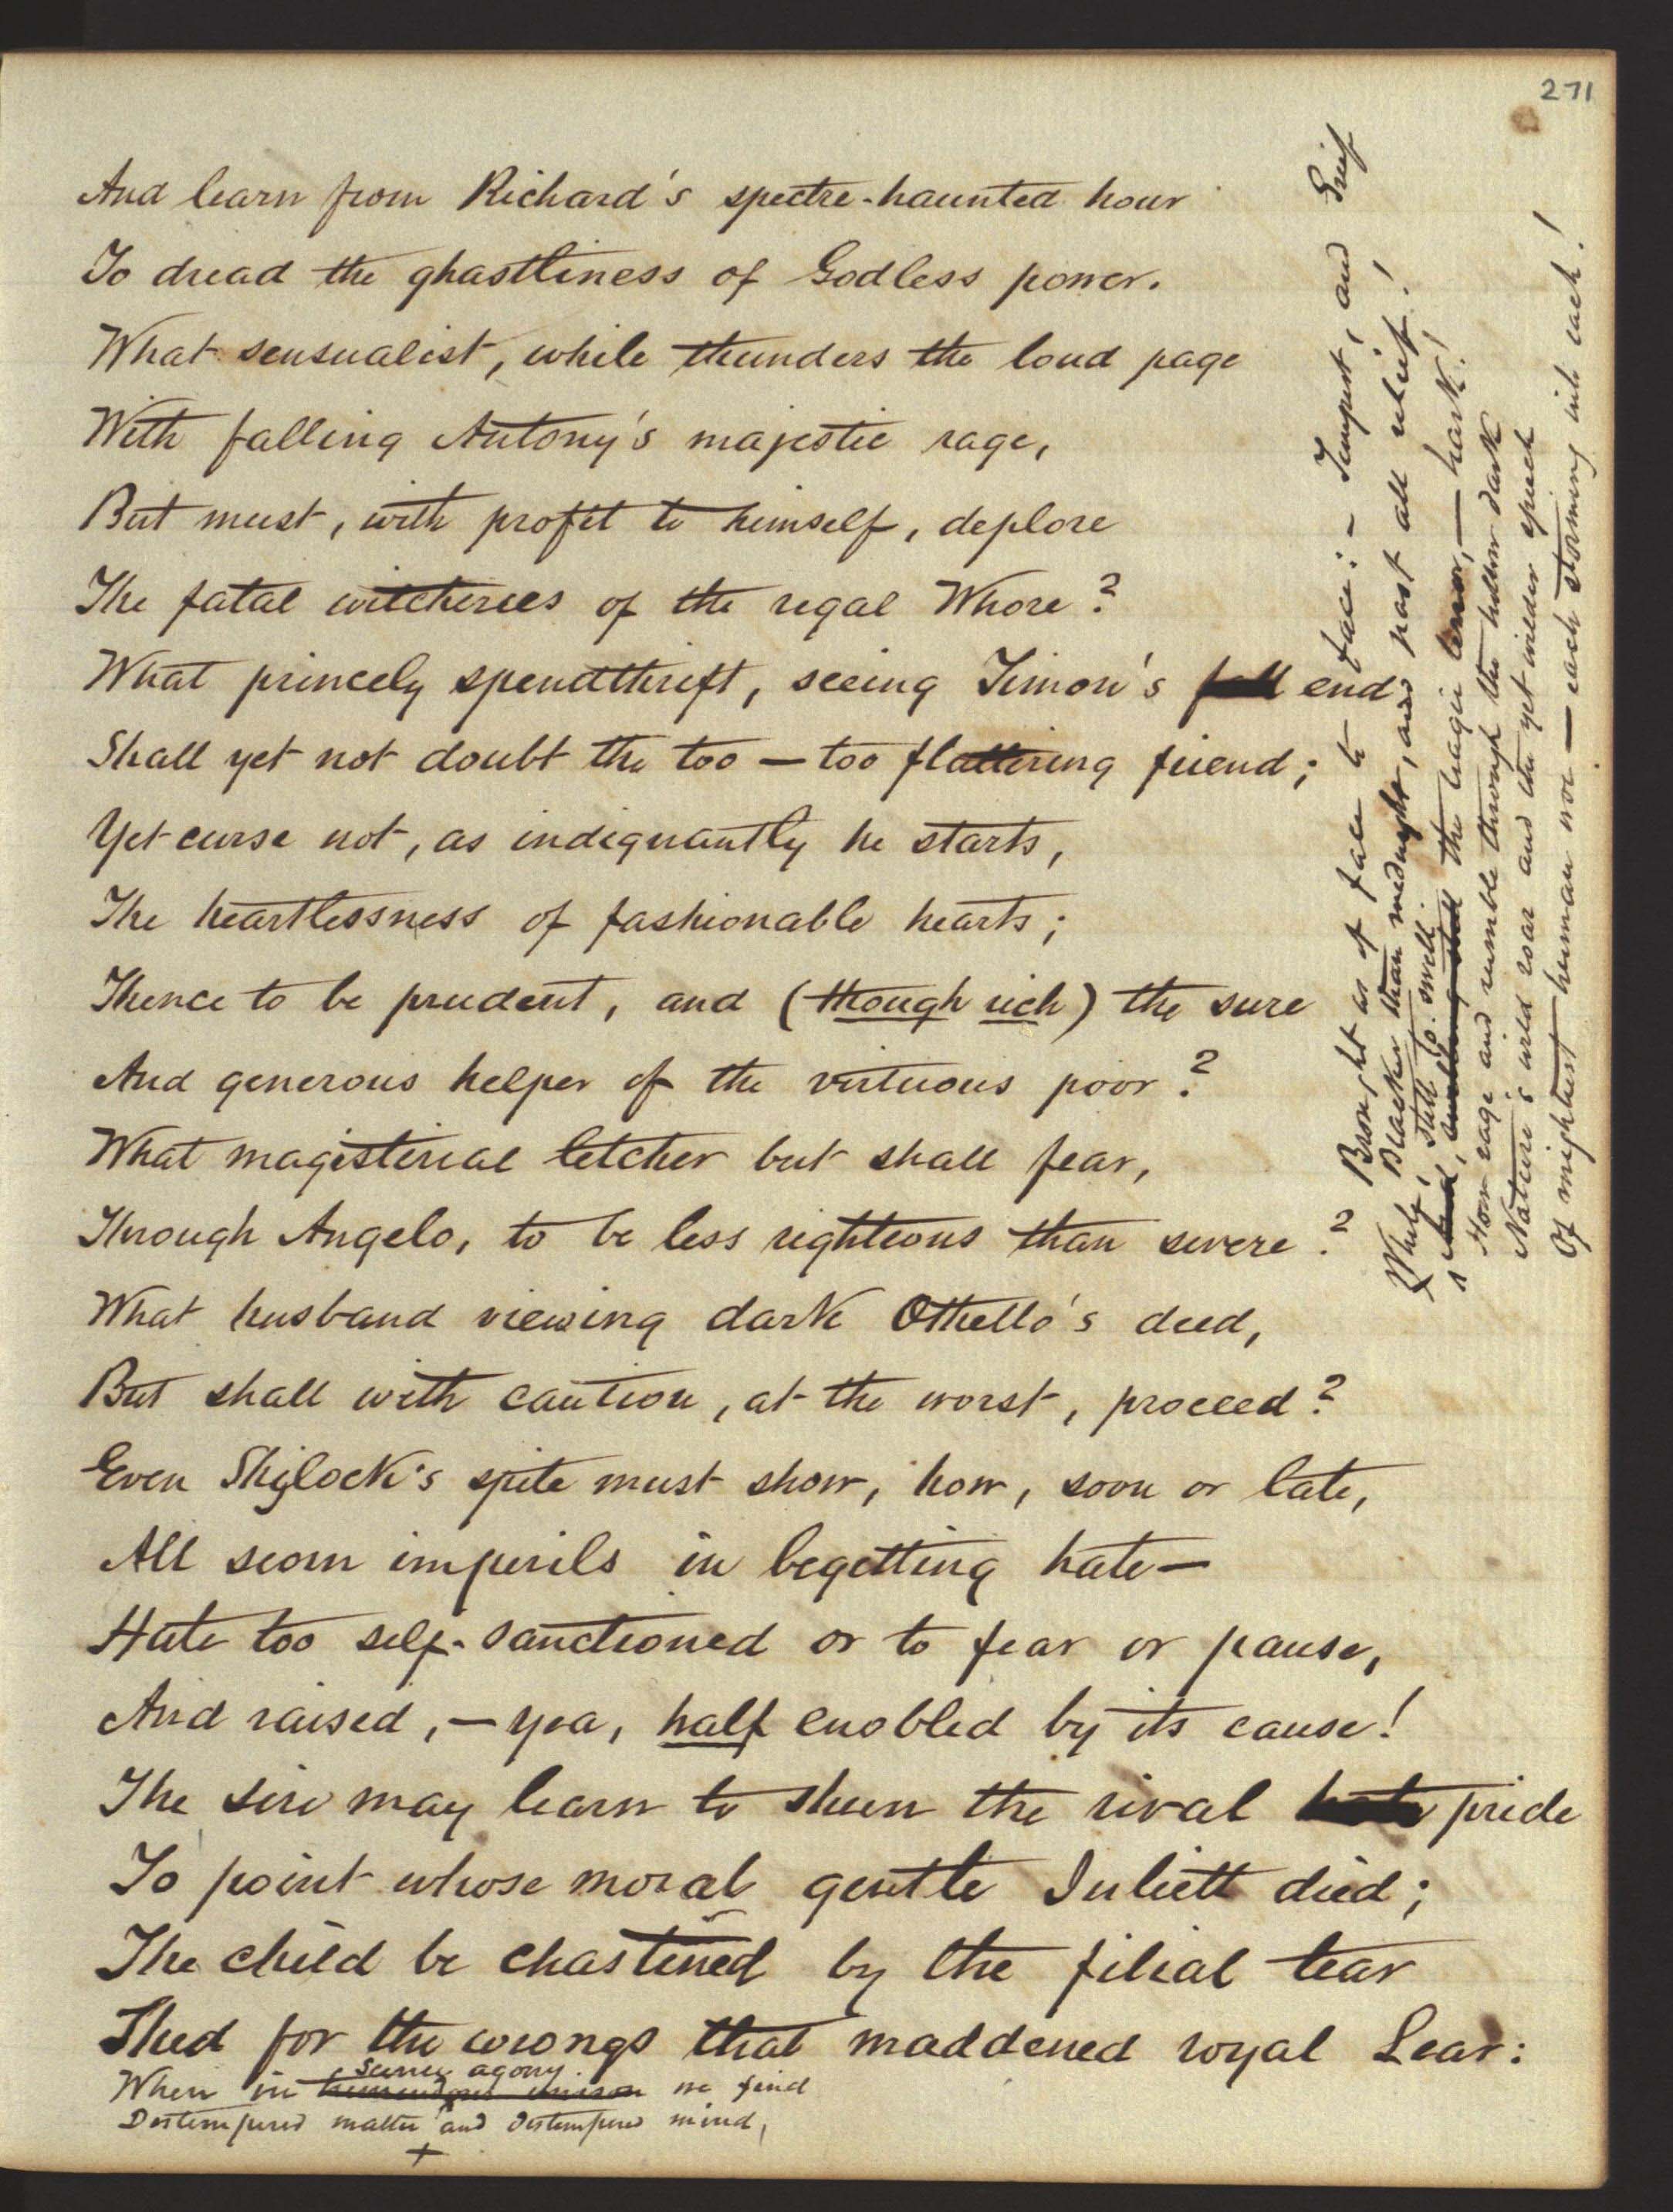 271
And learn from Richard's spectre-haunted hour
To dread the ghastliness of Godless power.
What sensualist, while thunders the loud page
With falling Antony's majestic rage,
But must, with profit to himself, deplore
The fatal witcheries of the regal Whore?
What princely spendthrift, seeing Timon's fall end
Shall yet not doubt the too — too flattering friend;
Yet curse not, as indignantly he starts,
The heartlessness of fashionable hearts;
Thence to be prudent, and (though rich) the sure
And generous helper of the virtuous poor?
What magisterial letcher but shall fear,
Through Angelo, to be less righteous than severe?
What husband viewing dark Othello's deed,
But shall with caution, at the worst, proceed?
Even Shylock's spite must show, how, soon or late,
All scorn imperils in begetting hate—
Hate too self-sanctioned or to fear or pause,
And raised, — yea, half enobled by its cause!
The sire may learn to shun the rival hate pride
To point whose moral gentle Juliett died;
The child be chastened by the filial tear
Shed for the wrongs that maddened royal Lear:
same agony
When in tremendous unison we find
Distempered matter and distempered mind,
+
Brought as if face to face:— Tempest, and Grief
Blacker than midnight, and past all relief!
While, still to swell
the tragic terror, — hark!
How rage and rumble through the hollow dark
Nature's wild roar and the yet wilder speech
Of mightiest human woe — each storming into each!